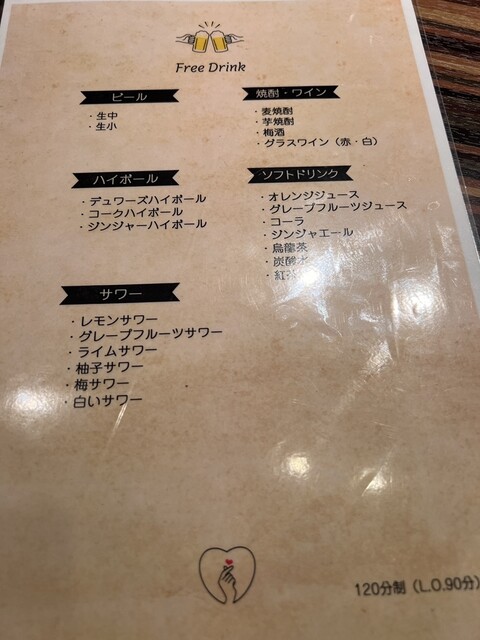 Free Drink
ビール
・生中
・生小
焼酎・ワイン
・麦焼酎
・芋焼酎
・梅酒
・グラスワイン（赤・白）
ハイボール
・デュワーズハイボール
・コークハイボール
・ジンジャーハイボール
ソフトドリンク
・オレンジジュース
・グレープフルーツジュース
・コーラ
・ジンジャエール
・烏龍茶
・炭酸水
・紅茶
サワー
・レモンサワー
・グレープフルーツサワー
・ライムサワー
・柚子サワー
・梅サワー
・白いサワー
120分制（L.O.90分）